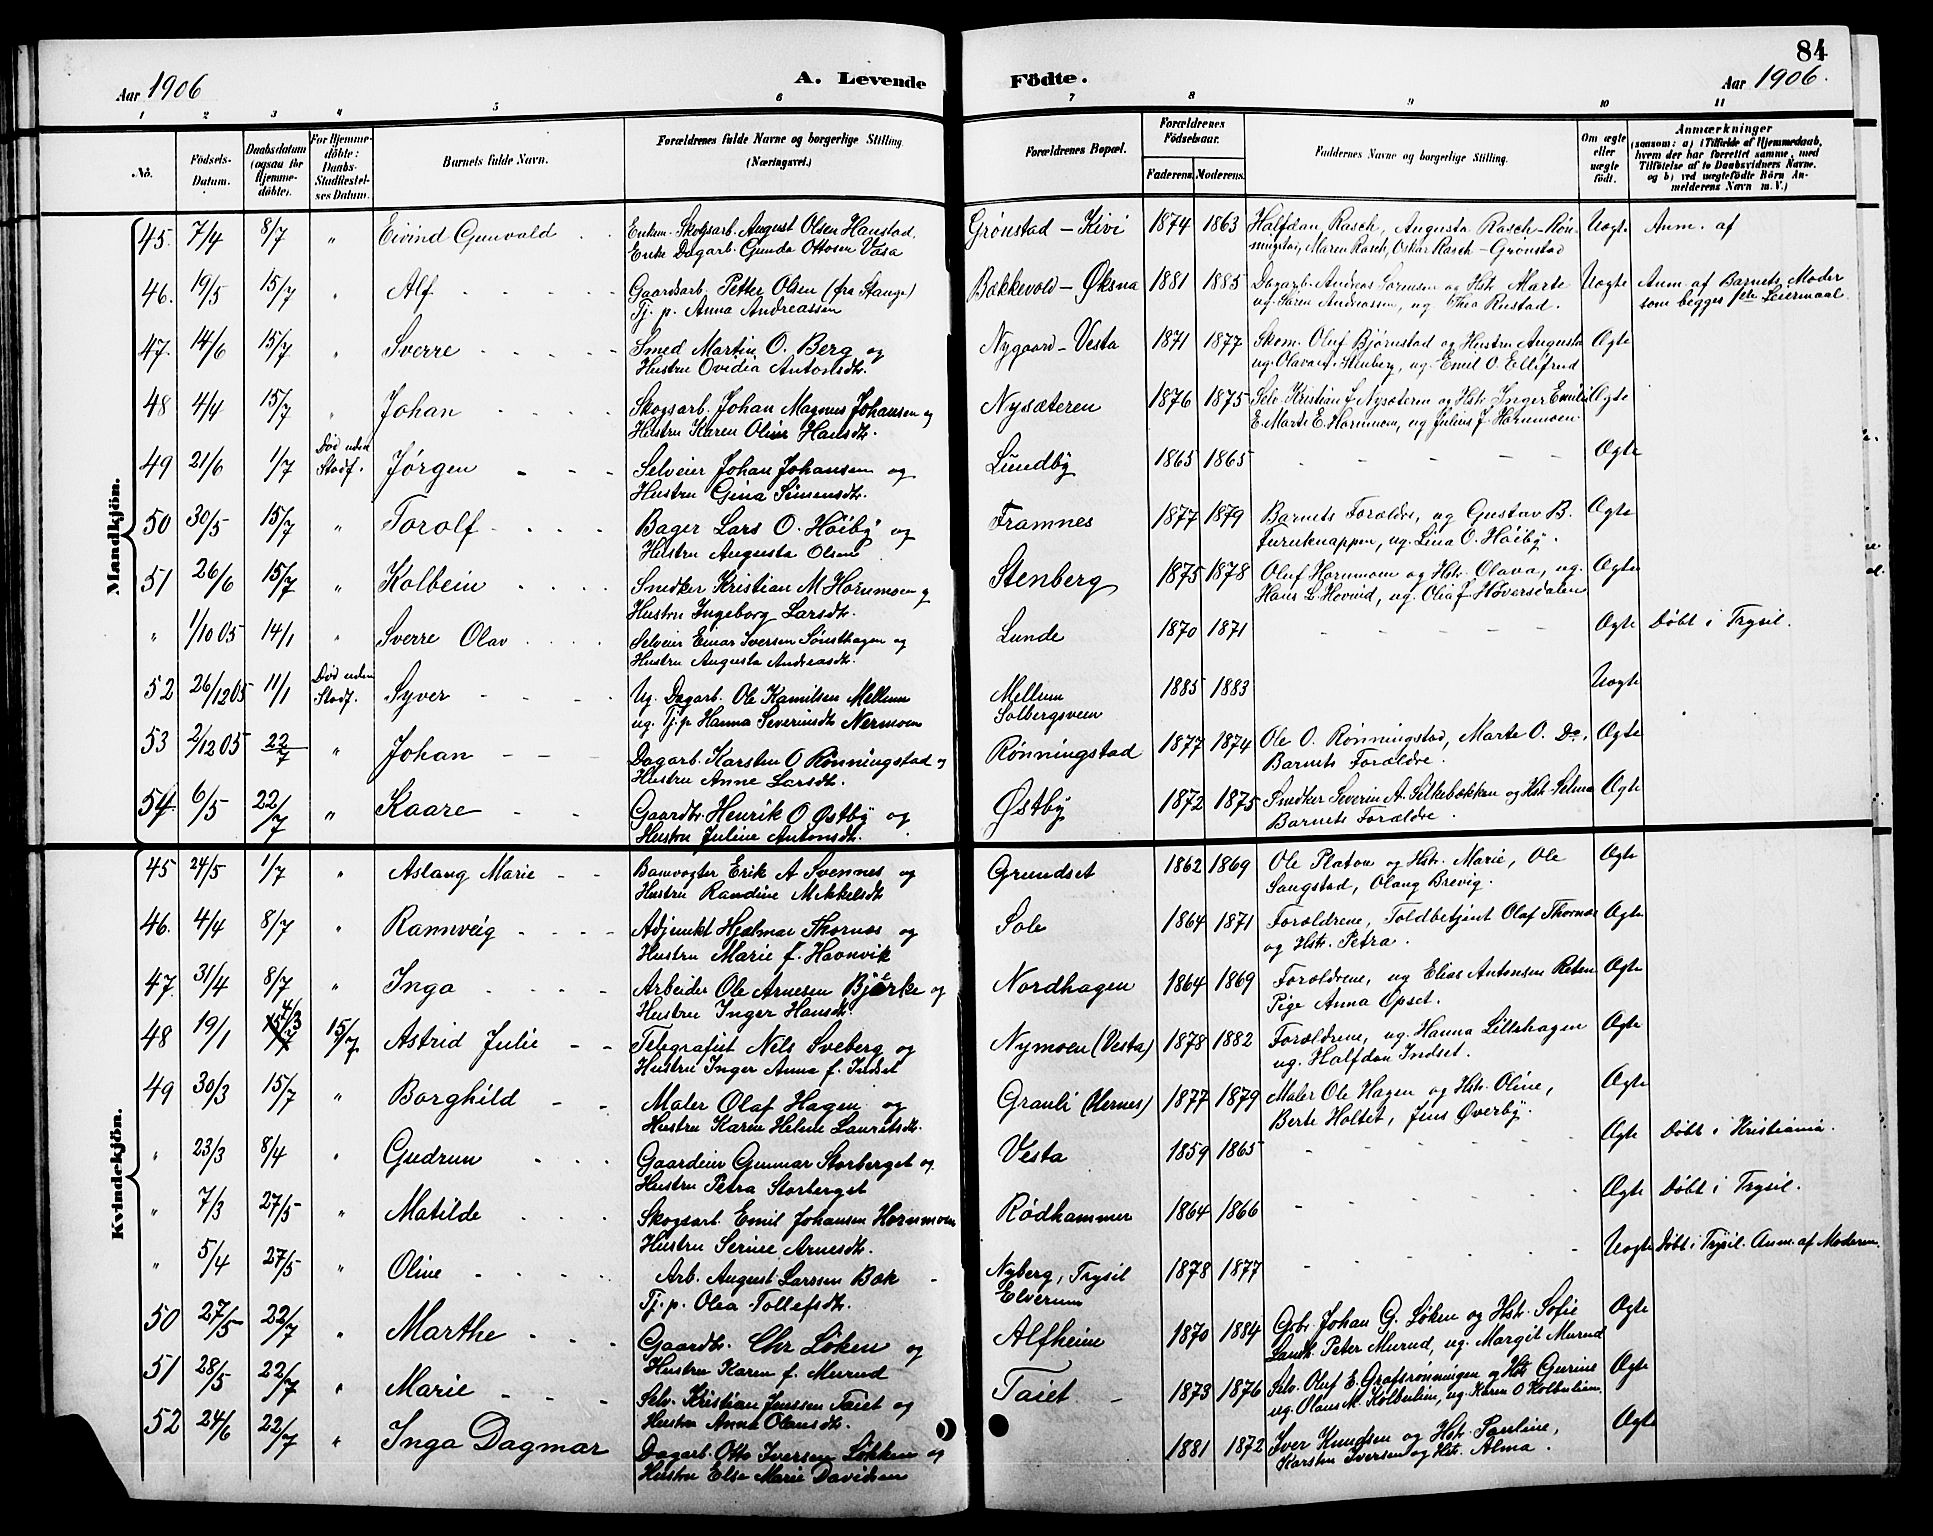 84
Aar 1906 A. Levende Födte. Aar 1906.
1 2 3 4 5 6 7 8 9 10 11
No.
Födsels-Datum.
Daabsdatum (ogsaa for Hjemmedöbte).
For Hjemmedöbte: Daabs-Stadfæstelses Datum.
Barnets fulde Navn.
Forældrenes fulde Navne og borgerlige Stilling (Næringsvei.)
Forældrenes Bopæl.
Forældrenes Födselsaar.
Faderens. Moderens.
Faddernes Navne og borgerlige Stilling.
Om ægte eller uægte födt.
Anmærkninger
(saasom: a) i Tilfælde af Hjemmedaab, hvem der har forrettet samme, med Tilföielse af to Daabsvidners Navne, og b) ved uægtefödte Börn Anmelderens Navn m. V.)
Mandkjön.
45. 7/4 8/7 " Eivind Gunvald Enkem. Skogsarb. August Olsen Hanstad Grønstad - Kivi 1874 1863 Halfdan Rasch, Augusta Rasch - Røn- Uægte Anm. af
Enke Dagarb. Gunda Ottosen Vasa ningstai, Maren Rasch, Oskar Rasch - Grønstad
46. 19/5 15/7 " Alf Gaardsarb. Petter Olsen (fra Stange) Bækkevold - Øksna 1881 1885 Dagarb. Andreas Sørensen og Hstr Marte Uægte Anm. af Barnets Moder
Tj. p. Anna Andreassen uf. Søren Andreassen, ug Thea Rustad. som begges 1ste Leiermaal.
47. 14/6 15/7 " Sverre Smed Martin O. Berg og Nygaard - Vesta 1871 1877 Skom. Oluf Bjørnstad og Hustru Augusta Ægte
Hustru Ovidia Antonsdtr. Stenberg, ug. Emil O. Ellifrud
48 4/4 15/7 " Johan Skogsarb. Johan Magnus Johansen og Nysæteren 1876 1875 Selv. Kristian J Nysæteren og Hstr Inger Emilie Ægte
Hustru Karen Oline Hansdtr. E. Marte E. Hornmoen, ug Julius J. Hornmoen
49 21/6 1/7 Død uden Stadf. Jørgen Selveier Johan Johansen og Lundby 1865 1865 Ægte
Hustru Gina Simensdtr.
50 30/5 15/7 " Torolf Bager Lars O. Høiby og Framnes 1877 1879 Barnets Forældre, ug Gustav B. Ægte
Hustru Augusta Olsen Furuknappen, ug. Lina O. Høiby.
51 26/6 15/7 " Kolbein Snedker Kristian M Hornmoen og Stenberg 1875 1878 Oluf Hornmoen og Hstr. Olava, ug. Ægte
Hustru Ingeborg Larsdtr. Hans L. Hovind, ug. Olia f Høversdalen
" 1/10 05 14/1 " Sverre Olav Selveier Einar Iversen Sønsthagen og Lunde 1870 1871 Ægte Døbt i Trysil.
Hustru Augusta Andreasdtr.
52 26/12 05 11/1 Død uden Stadf. Syver Ug. Dagarb. Ole Kamilsen Mellum Mellum 1885 1883 Uægte
ug. Tj. p Hanna Severinsdtr Nermoen Solbergsveen
53 2/12 05 22/7 " Johan Dagarb. Karsten O Rønningstad og Rønningstad 1877 1874 Ole O. Rønningstad, Marte O. Do. Ægte
Hustru Anne Larsdtr. Barnets Forældre.
54. 6/5 22/7 " Kaare Gaardbr. Henrik O Østby og Østby 1872 1875 Snedker Severin A. Silkebækken og Hstr Selma Ægte
Hustru Juline Antonsdtr. Barnets Forældre.
Kvindekjön.
45 24/5 1/7 " Aslaug Marie Banevogter Erik A Svennes og Grundset 1862 1869 Ole Platou og Hstr. Marie, Ole Ægte
Hustru Randine Mikkelsdtr Sangstad, Olaug Brevig.
46. 4/4 8/7 " Rannveig Adjunkt Hjalmar Thornæs og Sole 1864 1871 Forældrene, Toldbetjent Olaf Thornæs Ægte
Hustru Marie f. Havnvik og Hstr. Petra.
47. 31/4 8/7 " Inga Arbeider Ole Arnesen Bjerke og Nordhagen 1864 1869 Forældrene, ug Elias Antonsen Reten Ægte
Hustru Inger Hansdtr. Pige Anna Opset.
48 19/1 4/3 15/7 Astrid Julie Telegrafist Nils Sveberg og Nymoen (Vesta) 1878 1882 Forældrene, ug. Hanna Lillehagen Ægte
Hustru Inger Anna f. Indset ug. Halfdan Indset.
49 30/3 15/7 " Borghild Maler Olaf Hagen og Grauli (Hernes) 1877 1879 Maler Ole Hagen og Hstr. Oline, Ægte
Hustru Karen Helene Lauritsdtr. Berte Holtet, Jens Øverby.
" 23/3 8/4 " Gudrun Gaardeier Gunnar Storberget og Vesta 1859 1865 Ægte Døbt i Kristiania.
Hustru Petra Storberget
" 7/3 27/5 " Matilde Skogsarb. Emil Johansen Hornmoen Rødhammer 1864 1866 Ægte Døbt i Trysil.
Hustru Serine Arnesdtr.
" 5/4 27/5 " Oline Arb. August Larssen Bak Nyberg, Trysil 1878 1877 Uægte Døbt i Trysil. Anm. af Moderen.
Tj. p. Olea Tollefsdtr. Elverum
50 27/5 22/7 " Marthe Gaardbr. Chr Løken og Alfheim 1870 1884 Gbr. Johan G. Løken og Hstr. Sofie Ægte
Hustru Karen f. Murud Peter Murud, ug. Margit Murud
51 28/5 22/7 " Marie Selv. Kristian Jenssen Taiet og Taiet 1873 1876 Selv. Oluf E. Grafsrønningen og Hstr Gurine Ægte
Hustru Anna Olausdtr. ug. Olaus M. Kolbulien, ug. Karen O Kolbulien.
52 24/6 22/7 " Inga Dagmar Dagarb. Otto Iversen Løkken og 1881 1872 Iver Knudsen og Hstr. Pauline, Ægte
Hustru Else Marie Davidsen Karsten Iversen og Hst. Alma.